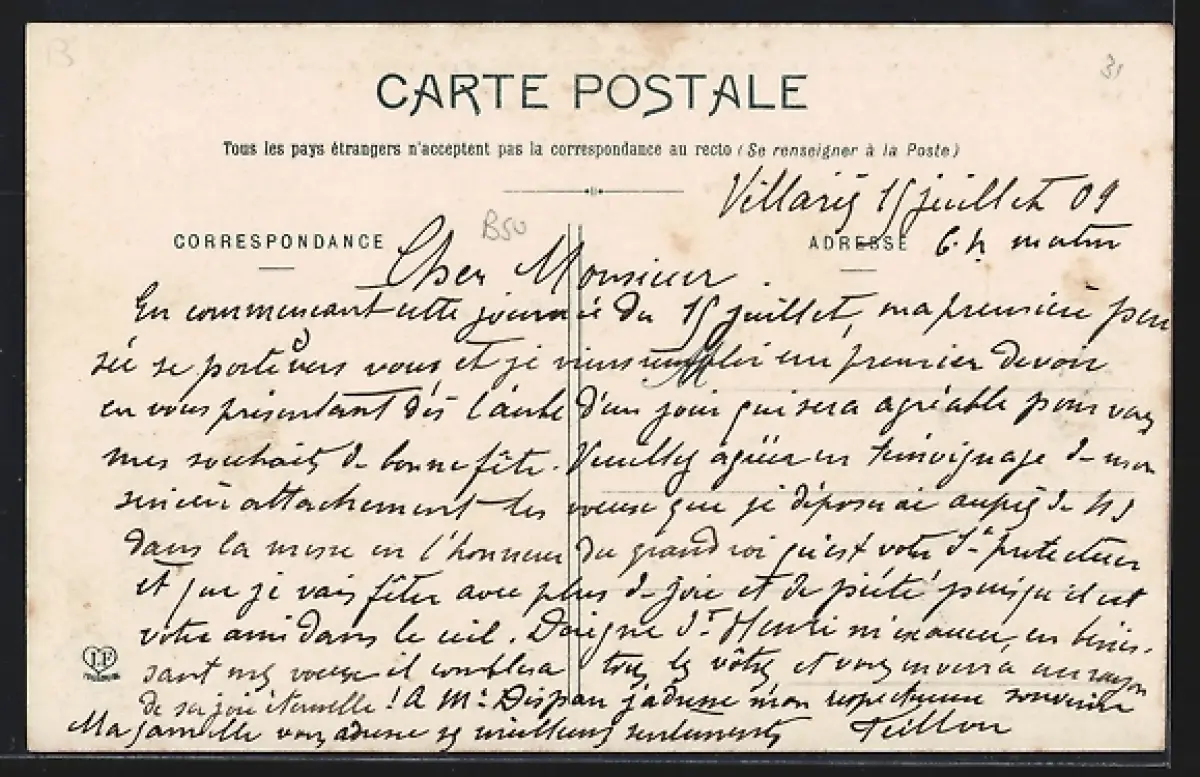 B
31
CARTE POSTALE
Tous les pays étrangers n'acceptent pas la correspondance au recto (Se renseigner à la Poste)
Villariès 15 juillet 09
B50
CORRESPONDANCE
ADRESSE
6. h matin
Cher Monsieur
En commencant cette journée du 15 juillet, ma première pen
sée se porte vers vous et je viens remplir un premier devoir
en vous présentant dès l'aube d'un jour qui sera agréable pour vous
mes souhaits de bonne fête. Veuillez agréer en témoignage de mon
sincère attachement les voeux que je déposerai auprès de NS
dans la messe en l'honneur du grand roi qu'est votre St protecteur
et que je vais fêter avec plus de joie et de piété puisqu'il est
votre ami dans le ciel. Daigne St Henri m'exaucer, en bénis-
sant mes voeux il comblera tous les vôtres et vous enverra un rayon
de sa joie éternelle ! A Me j'adresse mon respectueux souvenir
Ma famille vous adresse ses meilleurs sentiments